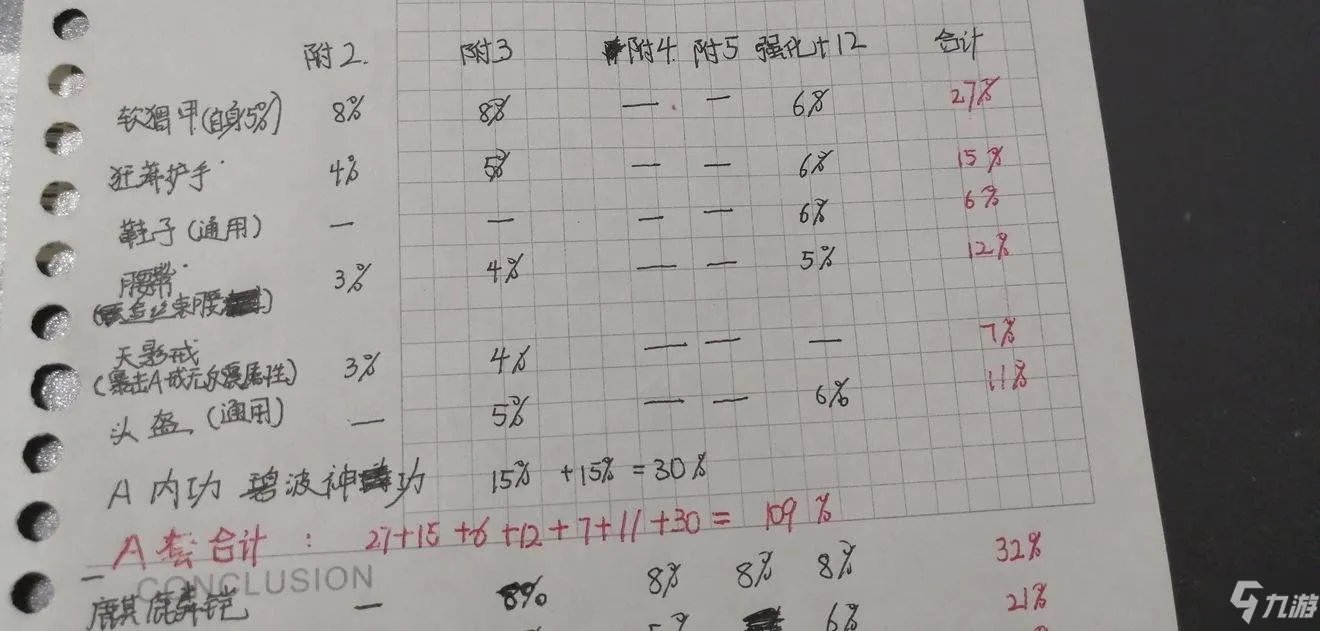 附2. 附3 附4. 附5 强化+12 合计
软猬甲(自身5%) 8% 8% — — 6% 27%
狂莽护手 4% 5% — — 6% 15%
鞋子(通用) — — — — 6% 6%
腰带 3% 4% — — 5% 12%
束腰
天影戒 3% 4% — — — 7%
(暴击A戒无
头盔(通用) — 5% — — 6% 11%
A 内功 碧波神功 15% +15% =30%
A套合计: 27+15+6+12+7+11+30= 109%
CONCLUSION
麒麟铠 — 8% 8% 8% 8% 32%
6% 21%
九游